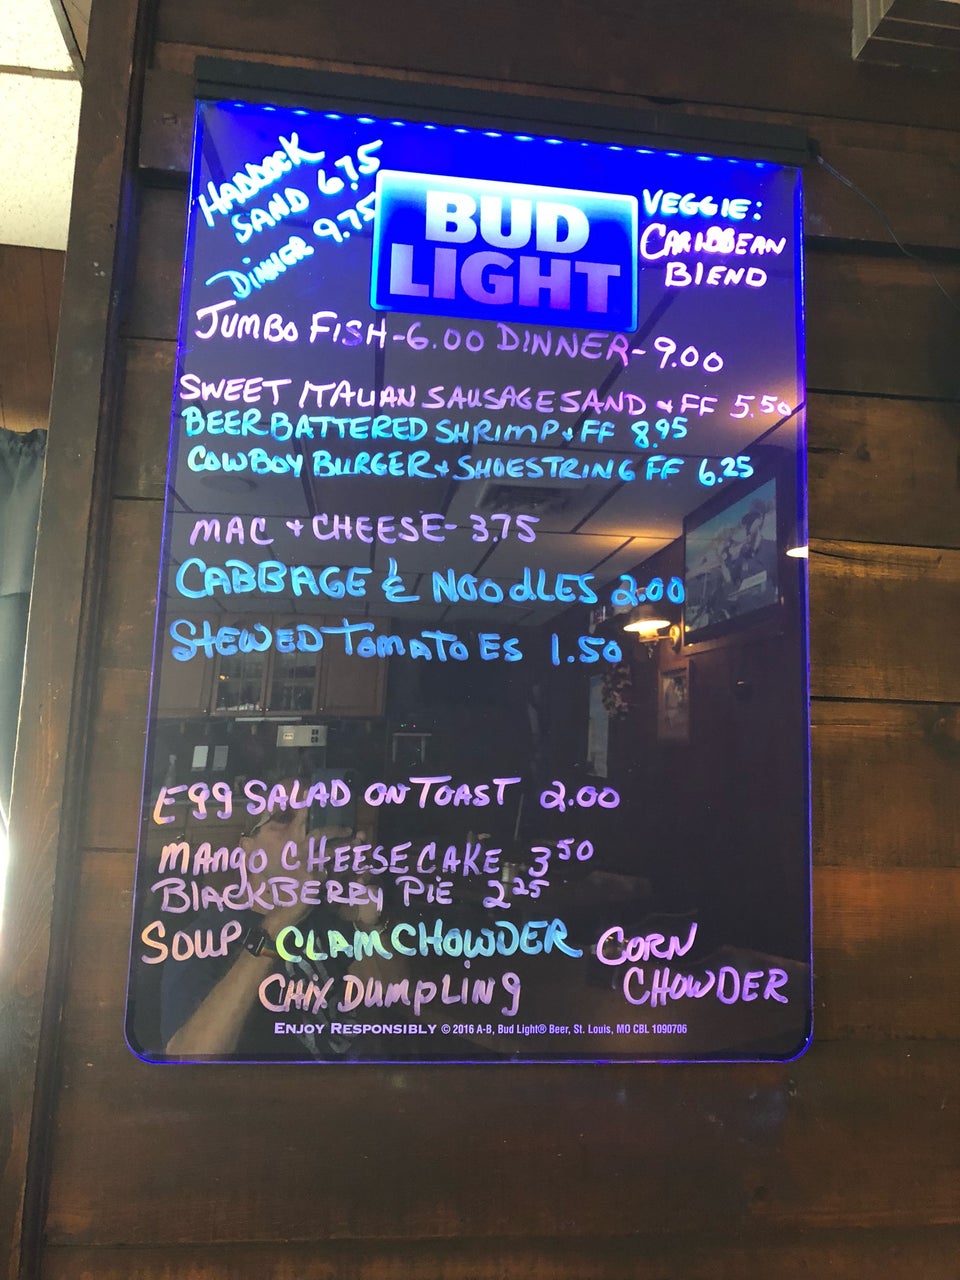 HADDOCK
SAND 6.75
DINNER 9.75
BUD
LIGHT
VEGGIE:
CARIBBEAN
BLEND
JUMBO FISH-6.00 DINNER-9.00
SWEET ITALIAN SAUSAGE SAND + FF 5.50
BEER BATTERED SHRIMP + FF 8.95
COWBOY BURGER + SHOESTRING FF 6.25
MAC + CHEESE- 3.75
CABBAGE & NOODLES 2.00
STEWED TOMATOES 1.50
Egg SALAD ON TOAST 2.00
MANgO CHEESE CAKE 3 50
BLACKBERRY PIE 2 25
SOUP CLAM CHOWDER CORN
CHIX DUMPLINg CHOWDER
ENJOY RESPONSIBLY © 2016 A-B, Bud Light® Beer, St. Louis, MO CBL 1090706